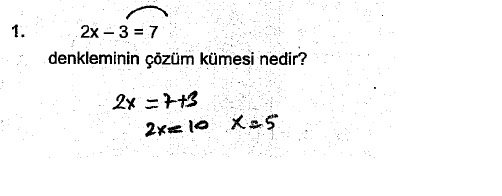 1. 2x – 3 = 7
denkleminin çözüm kümesi nedir?
2x = 7+3
2x = 10 x = 5